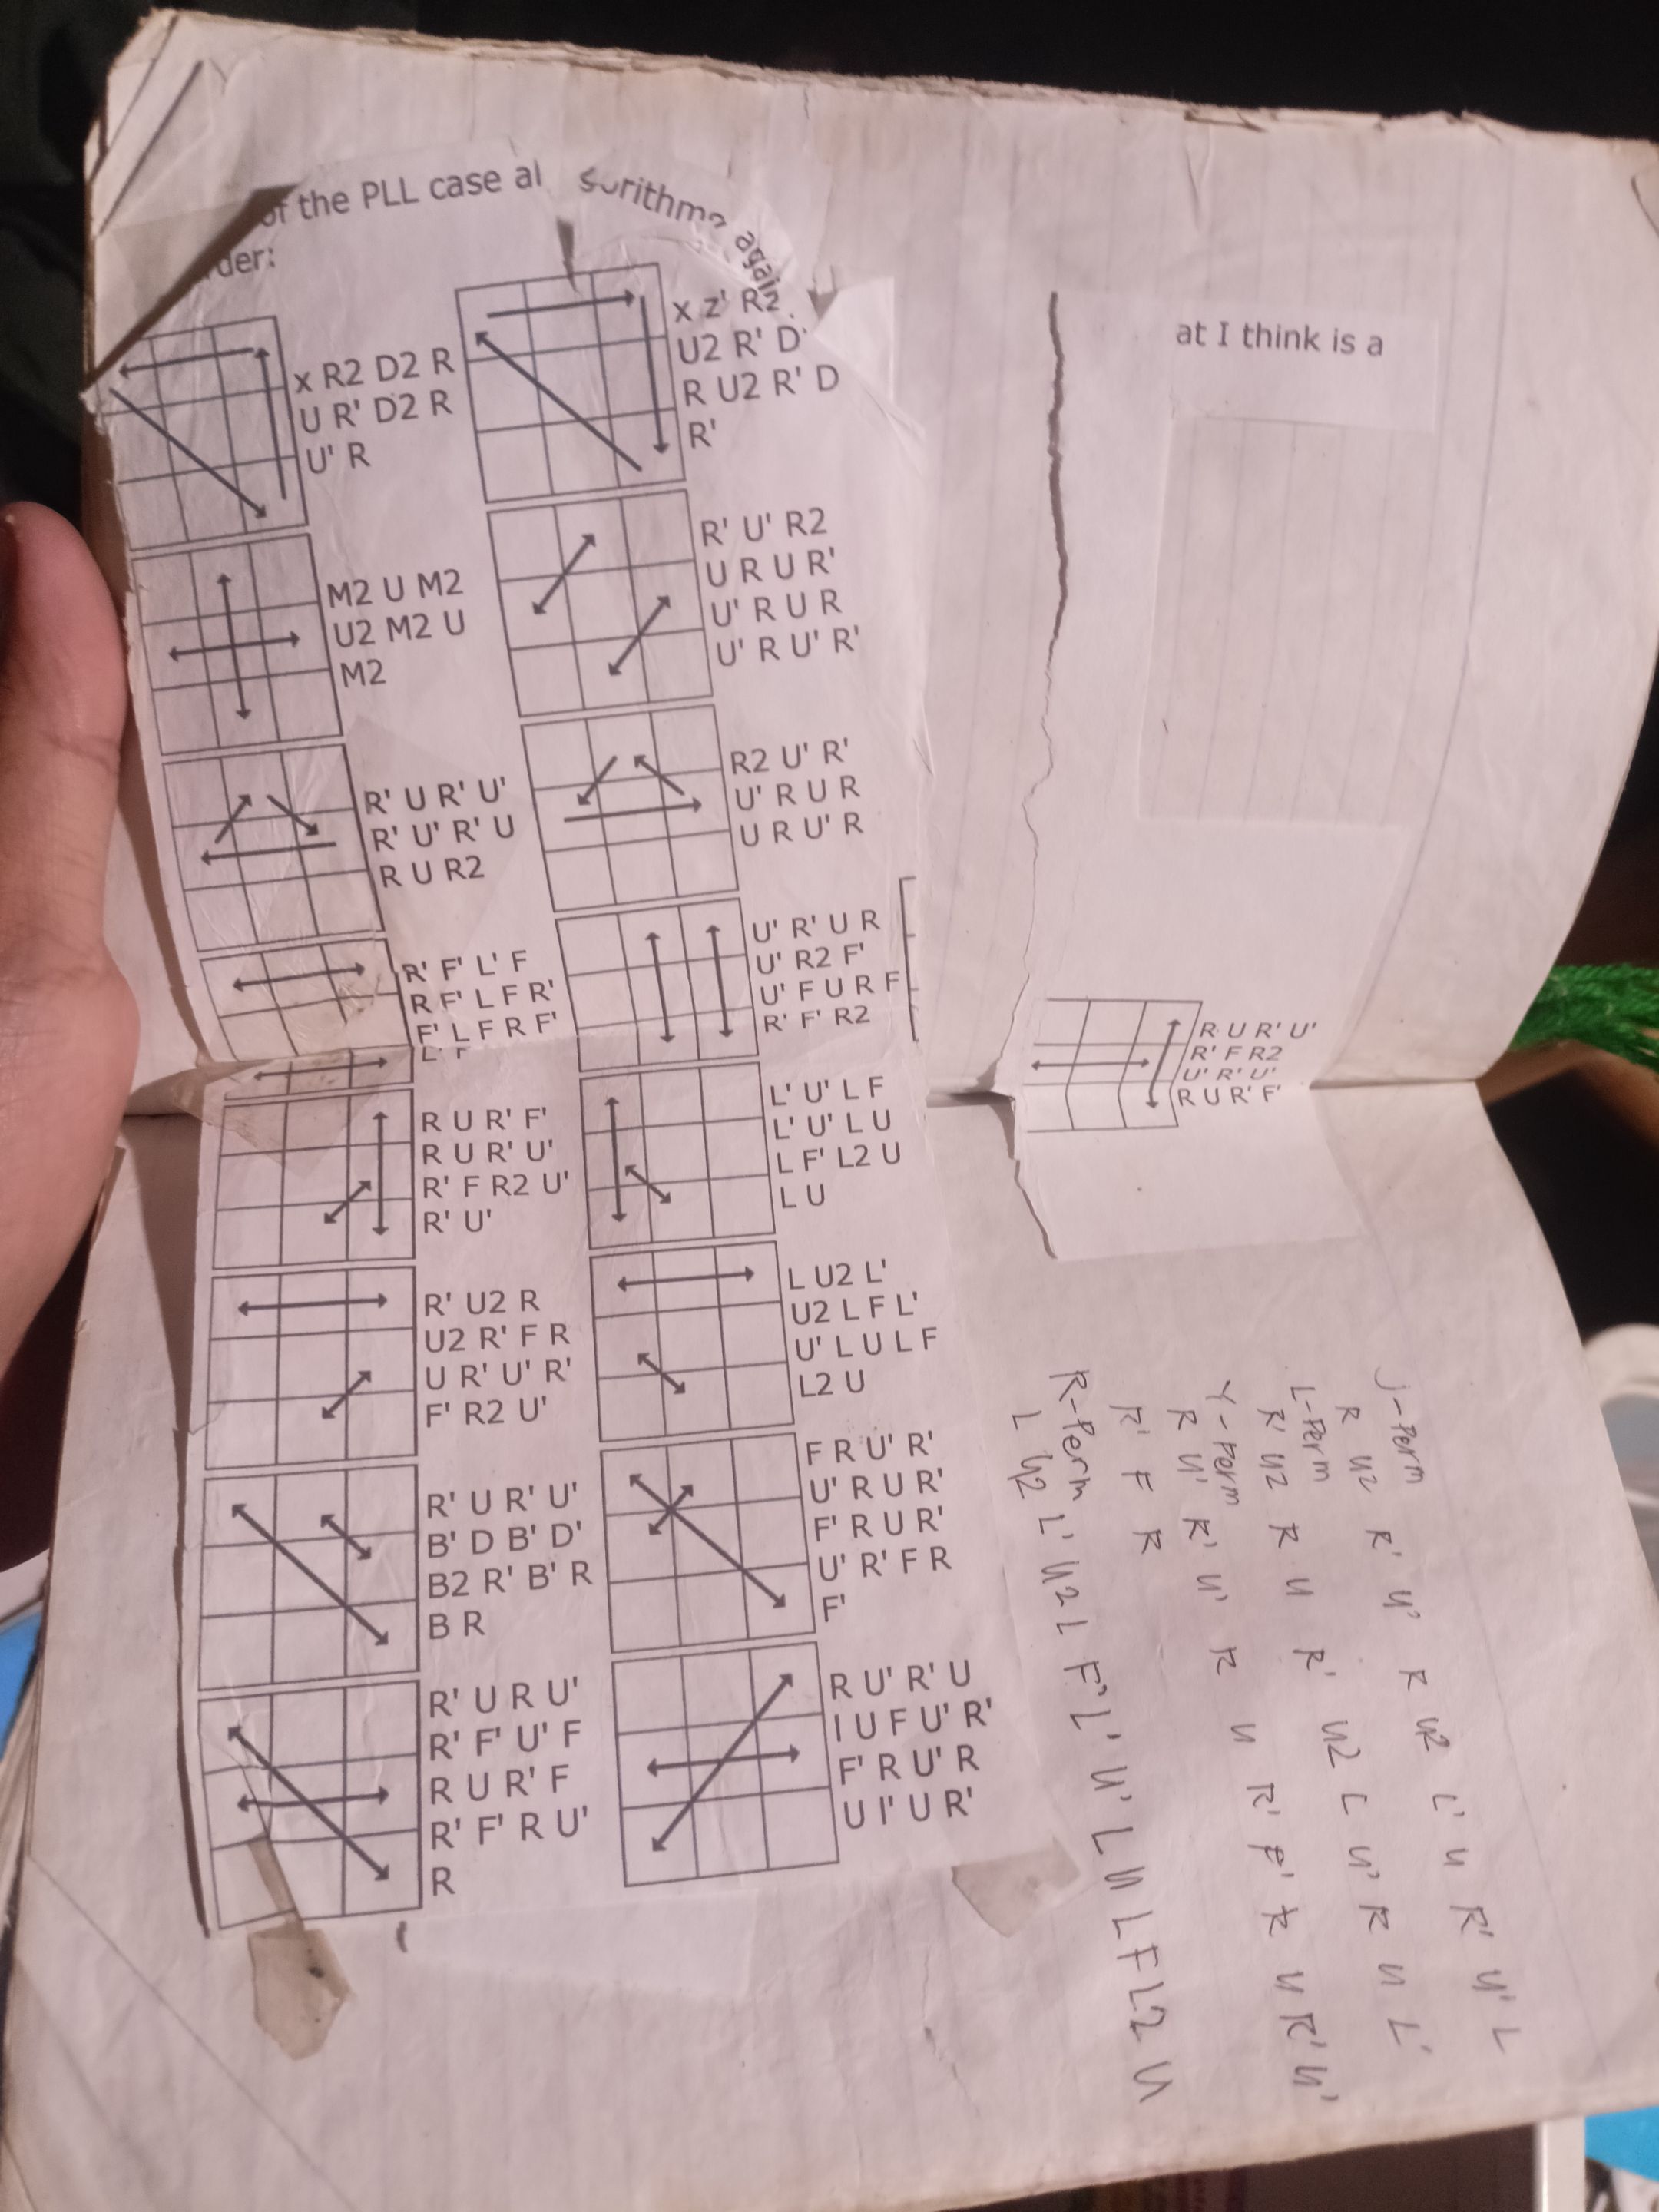 of the PLL case al
orithms again
der:
x R2 D2 R
U R' D2 R
U' R
x z' R2
U2 R' D'
R U2 R' D
R'
M2 U M2
U2 M2 U
M2
R' U' R2
U R U R'
U' R U R
U' R U' R'
R' U R' U'
R' U' R' U
R U R2
R2 U' R'
U' R U R
U R U' R
R' F' L' F
R F' L F R'
F' L F R F'
L' F'
U' R' U R
U' R2 F'
U' F U R F
R' F' R2
R U R' F'
R U R' U'
R' F R2 U'
R' U'
L' U' L F
L' U' L U
L F' L2 U
L U
R' U2 R
U2 R' F R
U R' U' R'
F' R2 U'
L U2 L'
U2 L F L'
U' L U L F
L2 U
R' U R' U'
B' D B' D'
B2 R' B' R
B R
F R U' R'
U' R U R'
F' R U R'
U' R' F R
F'
R' U R U'
R' F' U' F
R U R' F
R' F' R U'
R
R U' R' U
l U F U' R'
F' R U' R
U l' U R'
at I think is a
R U R' U'
R' F R2
U' R' U'
R U R' F'
J-Perm
R U2 R' U' R U2 L' U R' U' L
L-Perm
R' U2 R U R' U2 L U' R U L'
Y-Perm
R U' R' U' R U R' F' R U R' U'
R' F R
R-Perm
L U2 L' U2 L F' L' U' L U L F L2 U